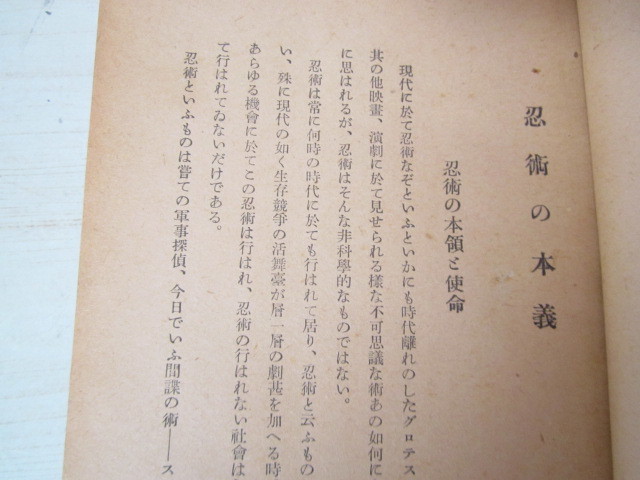 忍術の本義
忍術の本領と使命
現代に於て忍術なぞといふといかにも時代離れのしたグロテス
其の他映畫、演劇に於て見せられる樣な不可思議な術あの如何に
に思はれるが、忍術はそんな非科學的なものではない。
忍術は常に何時の時代に於ても行はれて居り、忍術と云ふもの
い、殊に現代の如く生存競爭の活舞臺が層一層の劇甚を加へる時
あらゆる機會に於てこの忍術は行はれ、忍術の行はれない社會は
て行はれてゐないだけである。
忍術といふものは嘗ての軍事探偵、今日でいふ間諜の術――ス